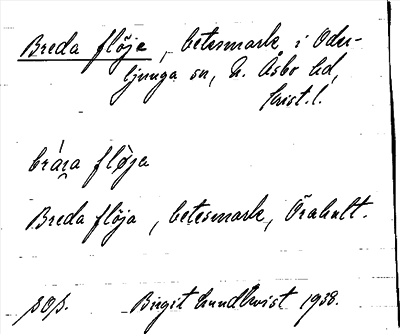 Breda flöja, betesmark i Oder-
ljunga sn, N. Åsbo hd,
Krist.l.
bràra flöja
Breda flöja, betesmark, Örahult.
sɷs. Birgit Lundkvist 1938.